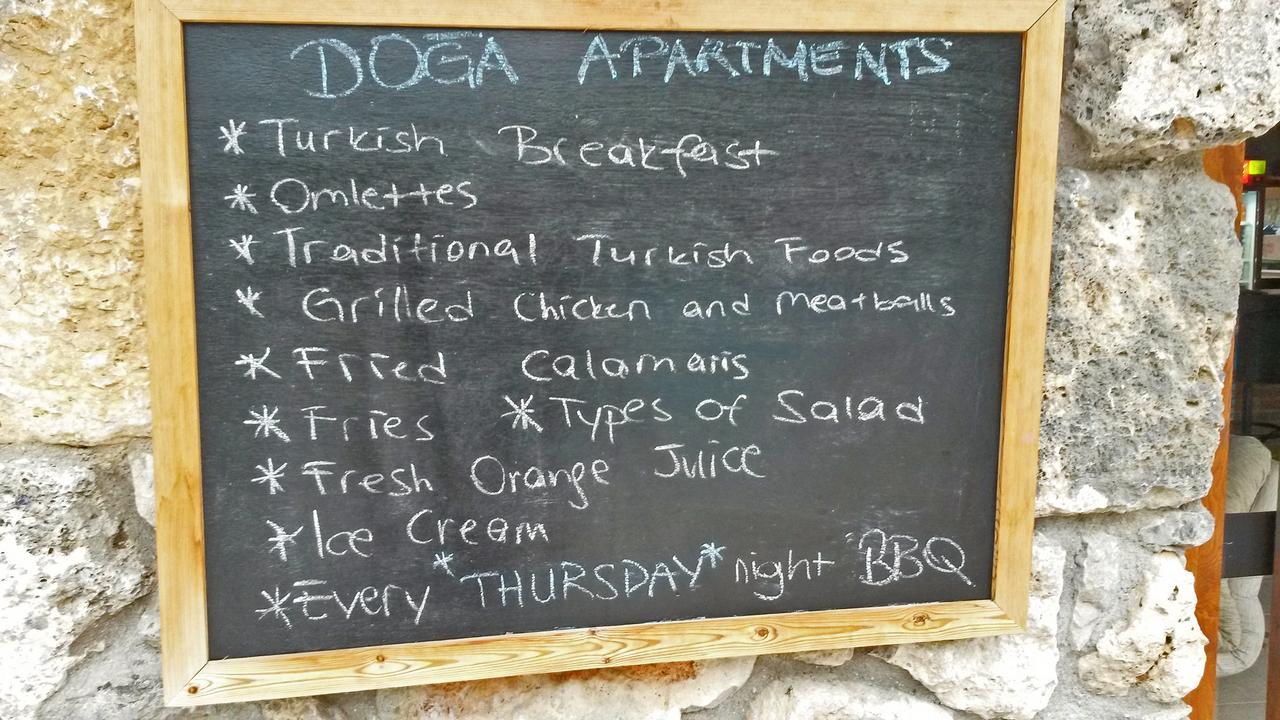 DOĞA APARTMENTS
* Turkish Breakfast
* Omlettes
* Traditional Turkish Foods
* Grilled Chicken and meatballs
* Fried Calamaris
* Fries * Types of Salad
* Fresh Orange Juice
* Ice Cream
* Every *THURSDAY* night BBQ